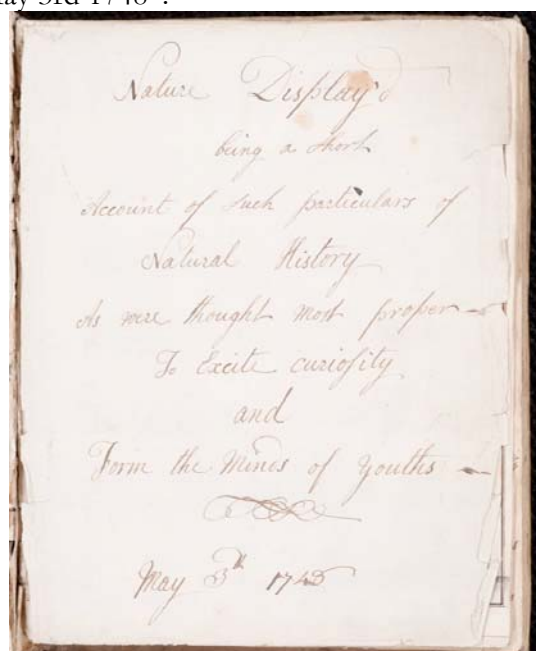 3rd
Nature Diſplay'd
being a short
Account of such particulars of
Natural History
As were thought most proper
To Excite curioſity
and
Form the Minds of Youths
May 3th